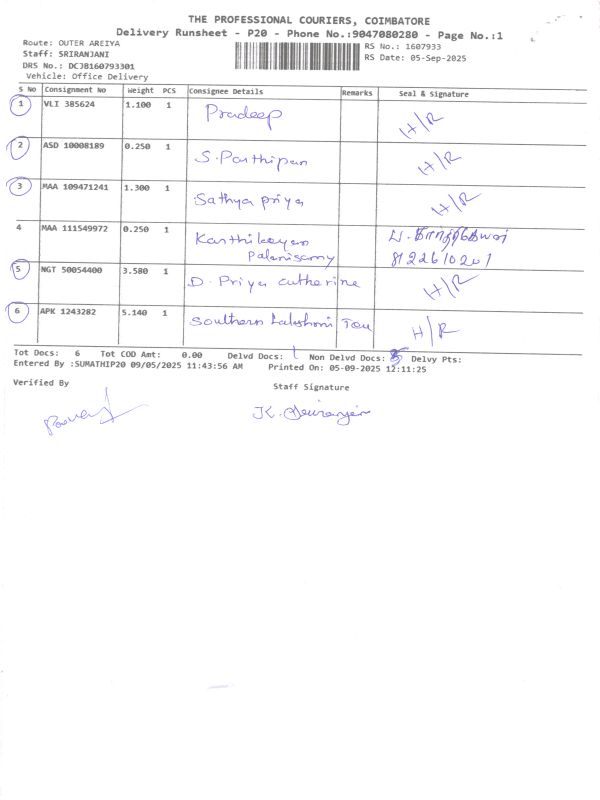 THE PROFESSIONAL COURIERS, COIMBATORE
Delivery Runsheet - P20 - Phone No.:9047080280 - Page No.:1
Route: OUTER AREIYA
RS No.: 1607933
Staff: SRIRANJANI
RS Date: 05-Sep-2025
DRS No.: DCJB160793301
Vehicle: Office Delivery
S No Consignment No Weight PCS Consignee Details Remarks Seal & Signature
1 VLI 385624 1.100 1 Pradeep H/R
2 ASD 10008189 0.250 1 S. Parthipan H/R
3 MAA 109471241 1.300 1 Sathya priya H/R
4 MAA 111549972 0.250 1 Karthikeyan
Palanisamy 8122610201
5 NGT 50054400 3.580 1 D. Priya Catherine H/R
6 APK 1243282 5.140 1 Southern Lakshmi H/R
Tot Docs: 6 Tot COD Amt: 0.00 Delvd Docs: 1 Non Delvd Docs: 5 Delvy Pts:
Entered By :SUMATHIP20 09/05/2025 11:43:56 AM Printed On: 05-09-2025 12:11:25
Verified By
Staff Signature